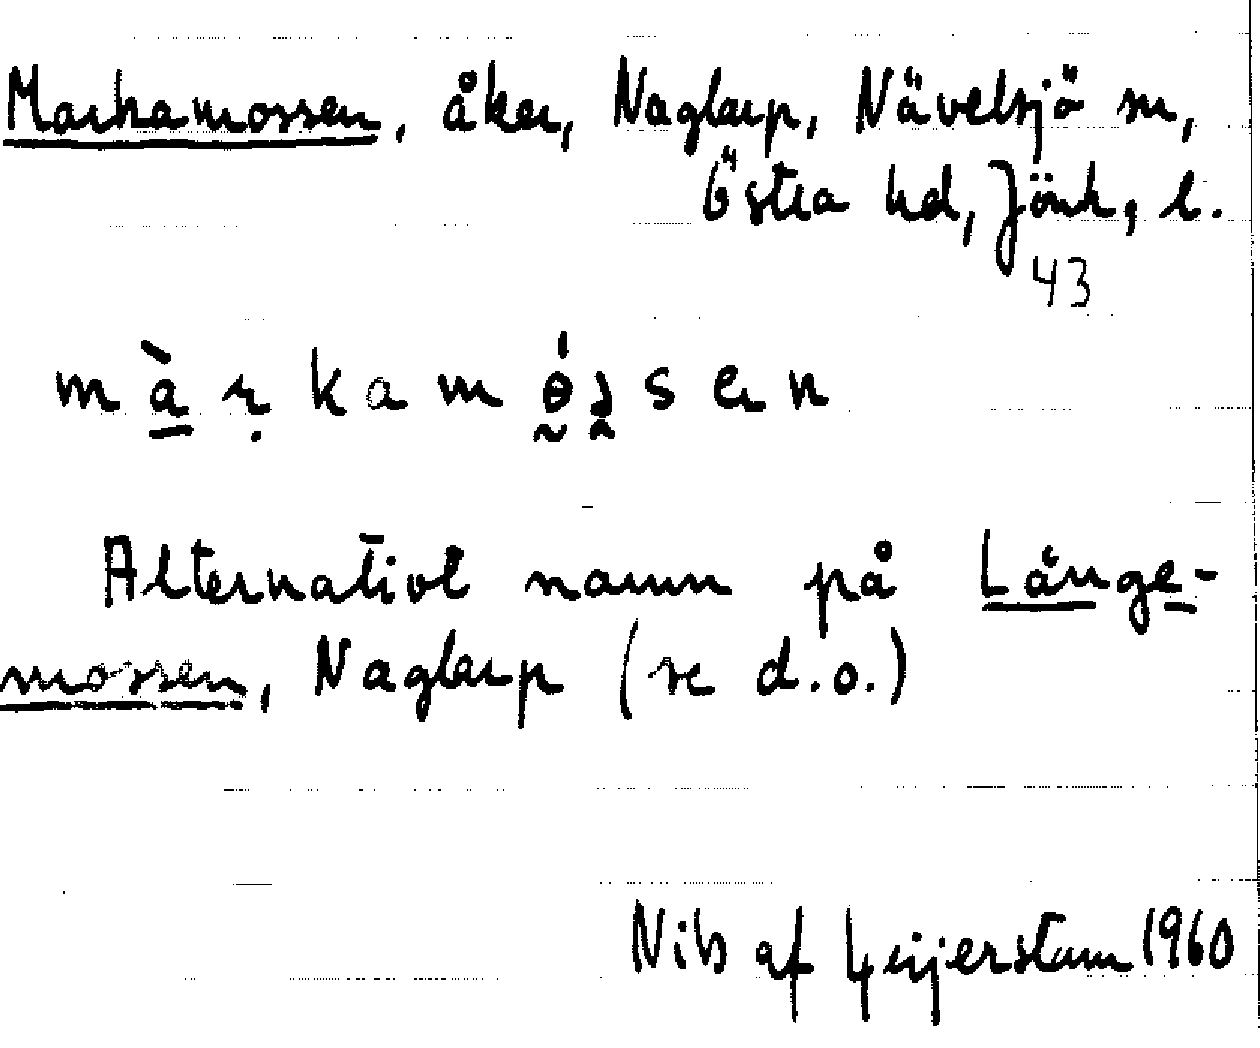 Markamossen, åker, Naglarp, Nävelsjö sn,
Östra hd, Jönk, l.
43
Alternativt namn på Länge-
mossen, Naglarp (se d.o.)
Nils af Geijerstam 1960